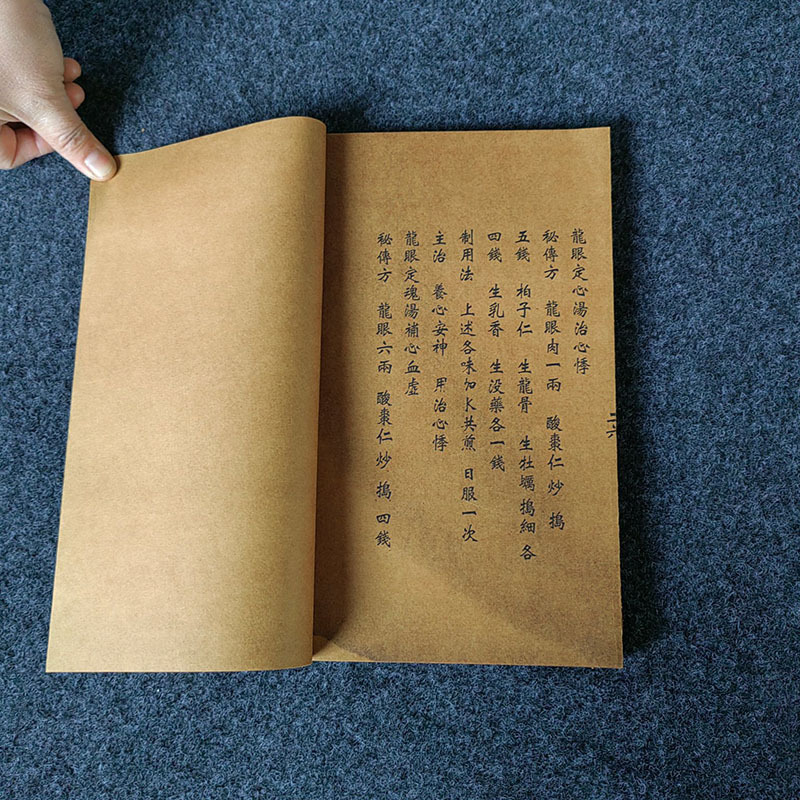 龍眼定心湯治心悸
秘傳方 龍眼肉一兩 酸棗仁炒 搗
五錢 柏子仁 生龍骨 生牡蠣搗細各
四錢 生乳香 生没藥各一錢
制用法 上述各味加水共煎 日服一次
主治 養心安神 用治心悸
龍眼定魂湯補心血虛
秘傳方 龍眼六兩 酸棗仁炒 搗 四錢